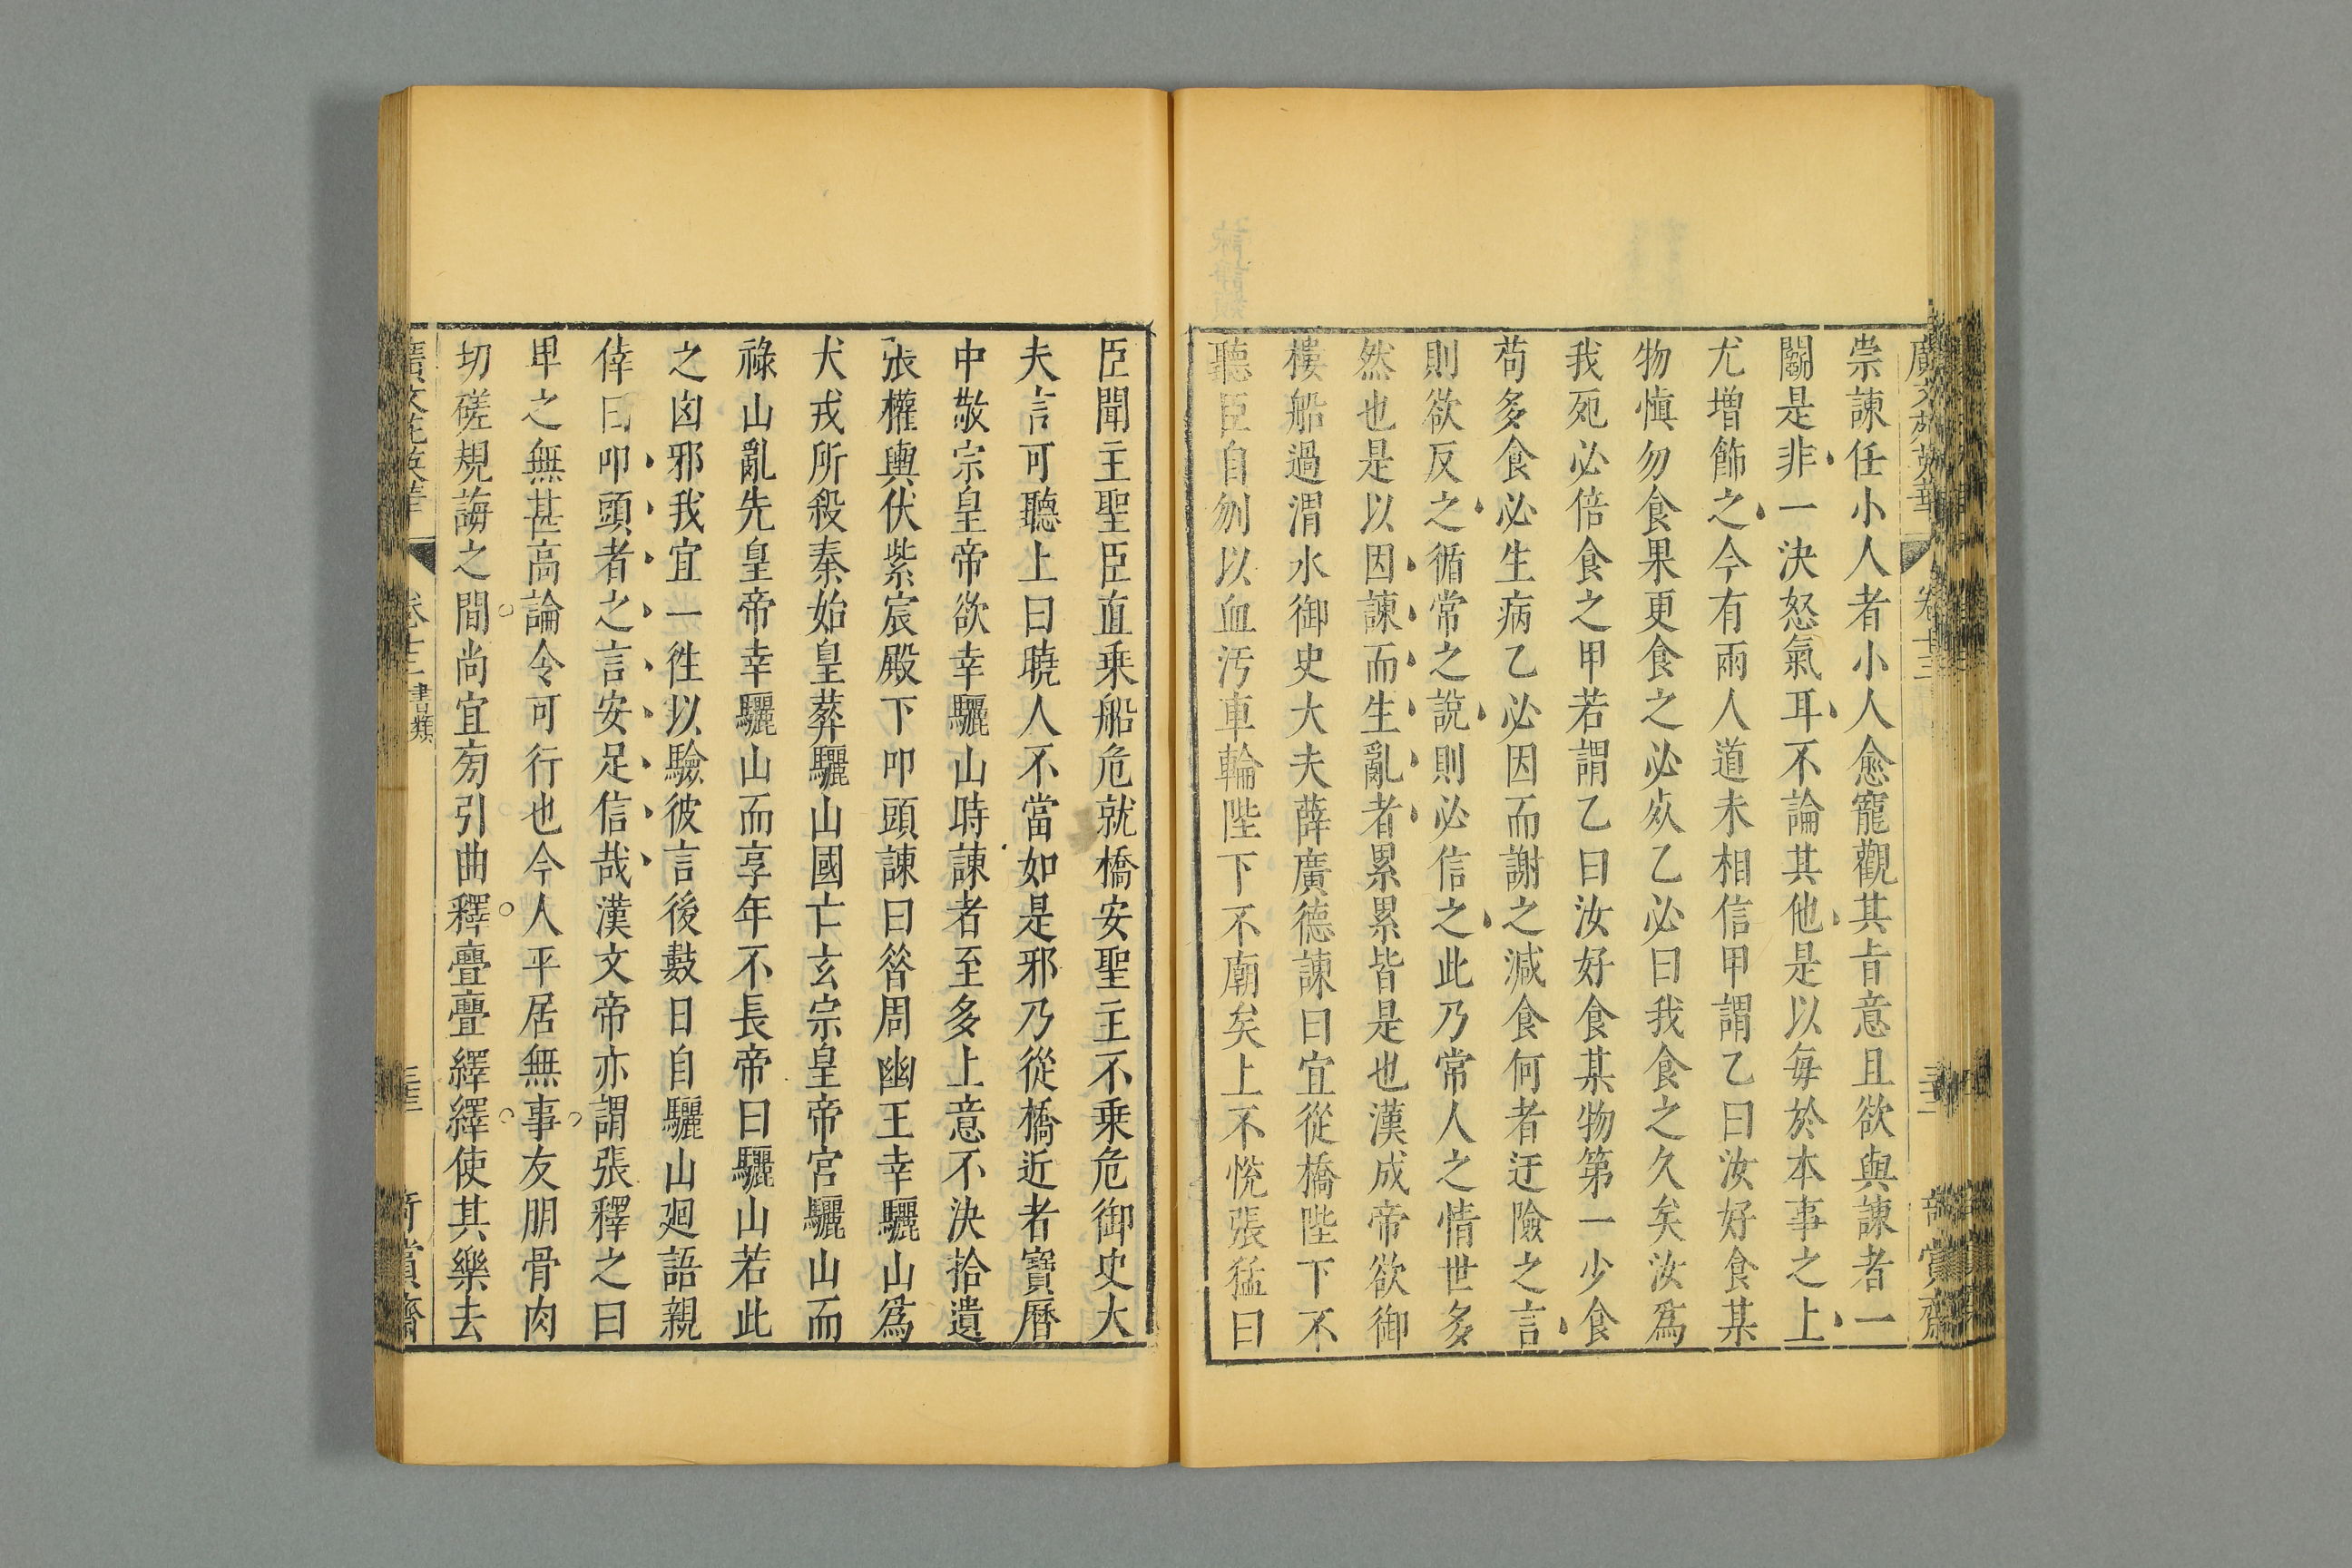 崇諫任小人者小人愈寵觀其㫖意且欲與諫者一
鬬是非一決怒氣耳不論其他是以每於本事之上
尤増飾之今有兩人道未相信甲謂乙曰汝好食某
物愼勿食果更食之必死乙必曰我食之久矣汝爲
我死必倍食之甲若謂乙曰汝好食某物第一少食
苟多食必生病乙必因而謝之減食何者迂險之言
則欲反之循常之說則必信之此乃常人之情世多
然也是以因諫而生亂者累累皆是也漢成帝欲御
樓船過渭水御史大夫薛廣德諫曰宜從橋陛下不
聽臣自刎以血汚車輪陛下不廟矣上不悅張猛曰
臣聞主聖臣直乗船危就橋安聖主不乗危御史大
夫言可聽上曰曉人不當如是邪乃從橋近者寶曆
中敬宗皇帝欲幸驪山時諫者至多上意不決拾遺
張權輿伏紫宸殿下叩頭諫曰昝周幽王幸驪山爲
犬戎所殺秦始皇葬驪山國亡玄宗皇帝宮驪山而
祿山亂先皇帝幸驪山而享年不長帝曰驪山若此
之凶邪我宜一徃以驗彼言後數日自驪山廻語親
倖曰叩頭者之言安足信哉漢文帝亦謂張釋之曰
卑之無甚高論令可行也今人平居無事友朋骨肉
切磋規誨之間尚宜旁引曲釋亹亹繹繹使其樂去
廣文苑英華 卷十三 書類 奇賞齋